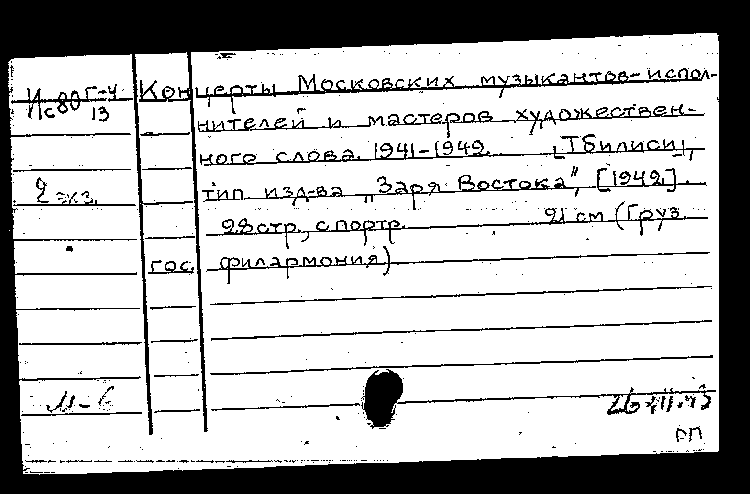 Ис80 Г-4/13 Концерты Московских музыкантов-испол-
нителей и мастеров художествен-
ного слова. 1941-1942. [Тбилиси],
2 экз. тип изд-ва „Заря Востока", [1942].
28стр., с портр. 21 см (Груз.
гос. филармония)
М-6
РП